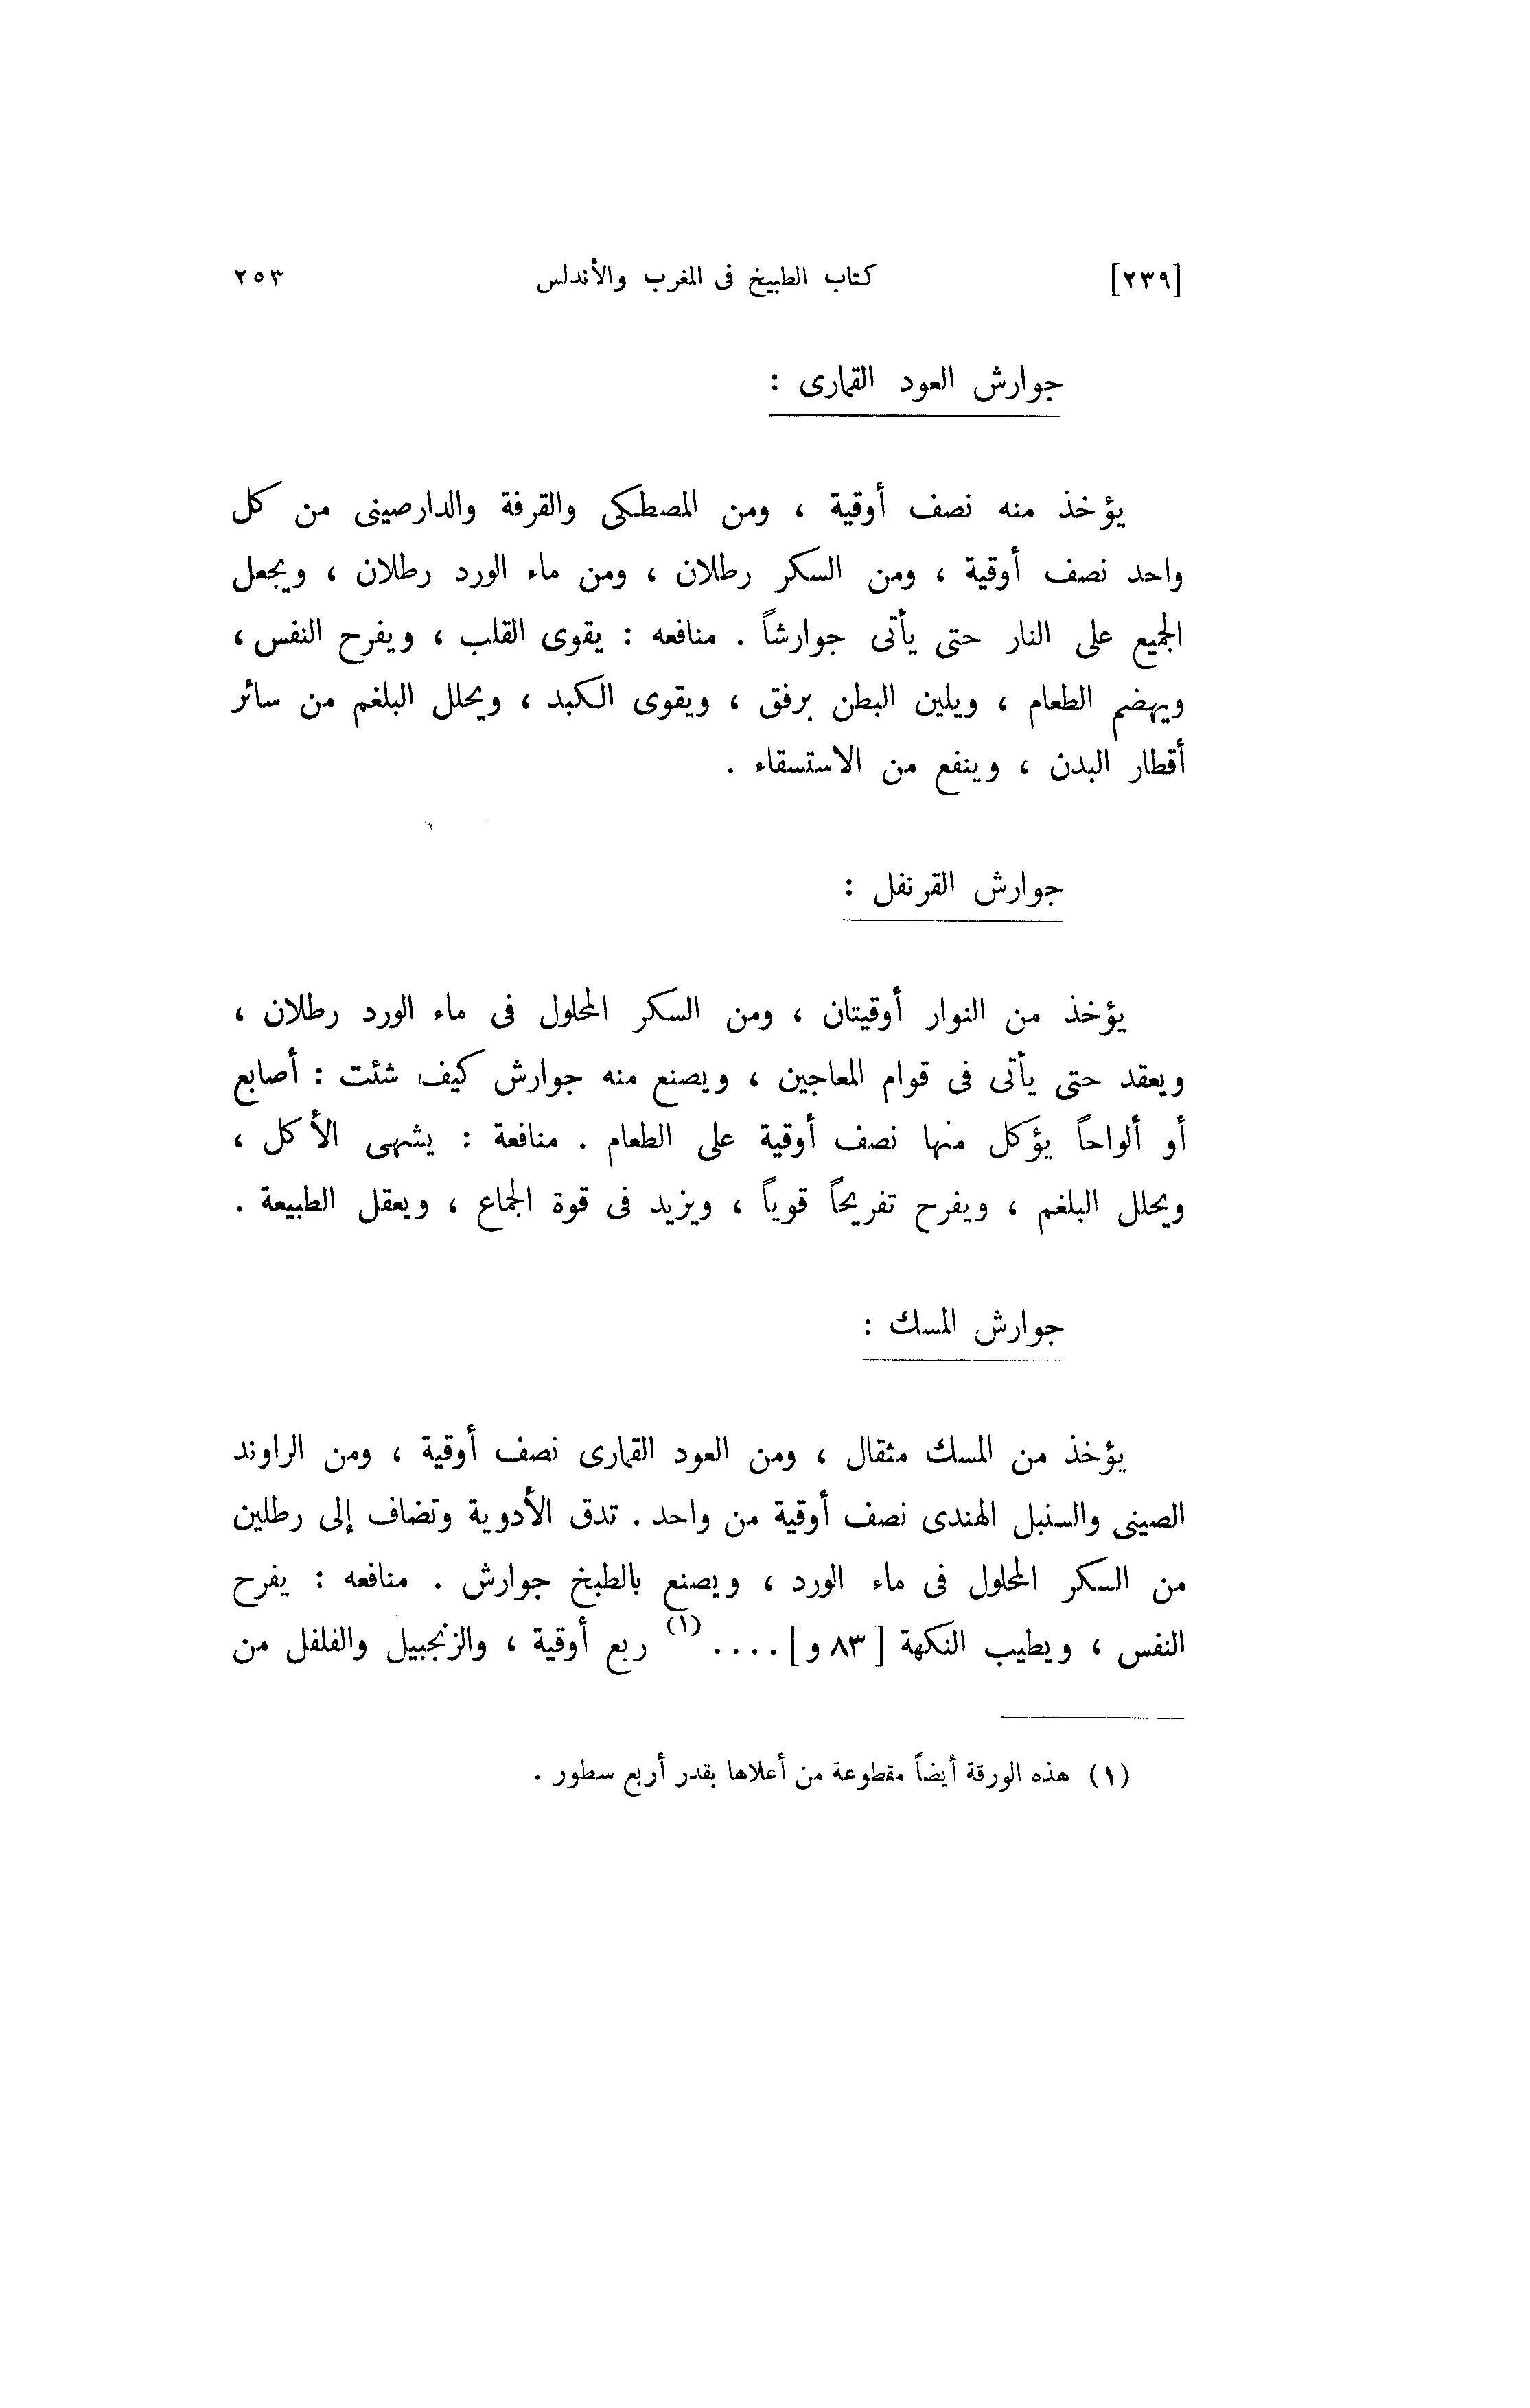 [٢٣٩] كتاب الطبيخ فى المغرب والأندلس ٢٥٣
جوارش العود القمارى :
يؤخذ منه نصف أوقية ، ومن المصطكى والقرفة والدارصينى من كل
واحد نصف أوقية ، ومن السكر رطلان ، ومن ماء الورد رطلان ، ويجعل
الجميع على النار حتى يأتى جوارشاً . منافعه : يقوى القلب ، ويفرح النفس ،
ويهضم الطعام ، ويلين البطن برفق ، ويقوى الكبد ، ويحلل البلغم من سائر
أقطار البدن ، وينفع من الاستسقاء .
جوارش القرنفل :
يؤخذ من النوار أوقيتان ، ومن السكر المحلول فى ماء الورد رطلان ،
ويعقد حتى يأتى فى قوام المعاجين ، ويصنع منه جوارش كيف شئت : أصابع
أو ألواحاً يؤكل منها نصف أوقية على الطعام . منافعة : يشهى الأكل ،
ويحلل البلغم ، ويفرح تفريحاً قوياً ، ويزيد فى قوة الجماع ، ويعقل الطبيعة .
جوارش المسك :
يؤخذ من المسك مثقال ، ومن العود القمارى نصف أوقية ، ومن الراوند
الصينى والسنبل الهندى نصف أوقية من واحد . تدق الأدوية وتضاف إلى رطلين
من السكر المحلول فى ماء الورد ، ويصنع بالطبخ جوارش . منافعه : يفرح
النفس ، ويطيب النكهة [٨٣ و] .... (١) ربع أوقية ، والزنجبيل والفلفل من
(١) هذه الورقة أيضاً مقطوعة من أعلاها بقدر أربع سطور .